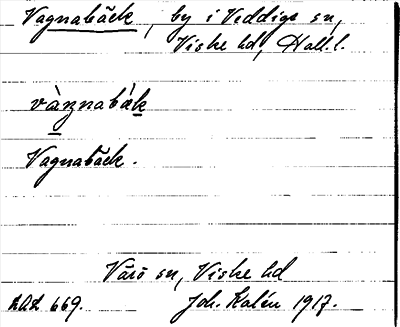 Vagnabäck, by i Veddige sn,
Viske hd, Hall. l.
vàŋnabák
Vagnabäck.
Värö sn, Viske hd
RAÄ 669. Joh. Kalén 1917.